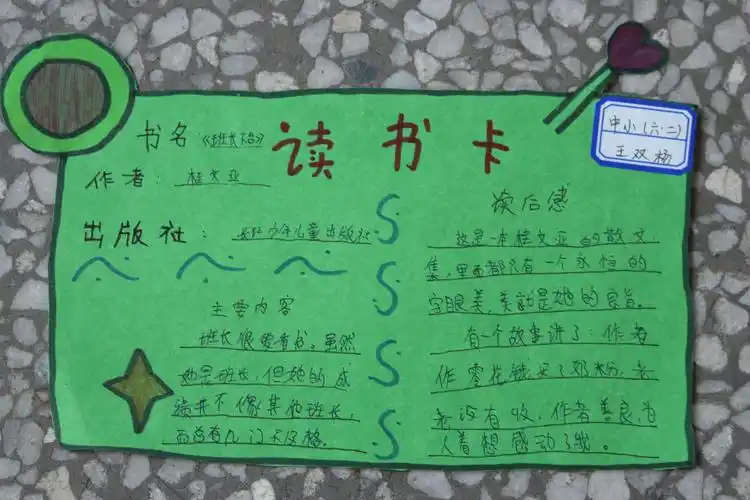 读书卡
中小(六·二)
王双杨
书名《班长下台》
作者: 桂文亚
出版社: 少年儿童出版社
主要内容
班长很爱看书。虽然
她是班长,但她的成
绩并不像其他班长,
而总有几门不及格。
读后感
这是一本桂文亚的散文
集,里面都只有一个永恒的
字眼美,美就是她的宗旨。
有一个故事讲了:作者
作零花钱买了奶粉,
没有收,作者善良,为
人着想感动了我。